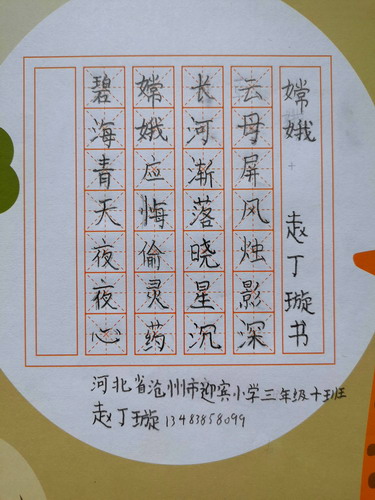 嫦娥 赵丁璇书
云母屏风烛影深
长河渐落晓星沉
嫦娥应悔偷灵药
碧海青天夜夜心
河北省沧州市迎宾小学三年级十班班
赵丁璇13483858099